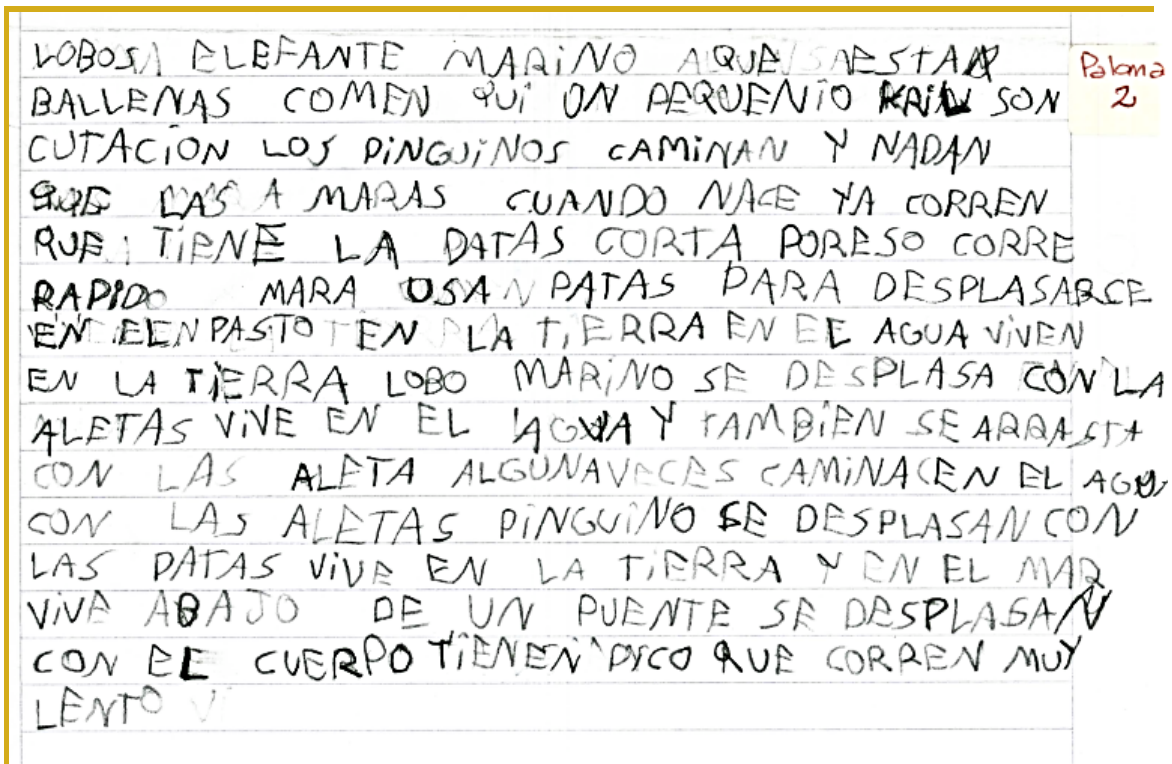 LOBOS ELEFANTE MARiNO AQUE ESTAR
BALLENAS COMEN QUi UN PEQUENiO KRiL SON
CUTACiON LOS PiNGUiNOS CAMiNAN Y NADAN
QUE LAS A MARAS CUANDO NACE YA CORREN
QUE TiENE LA PATAS CORTA PORESO CORRE
RAPIDO MARA USAN PATAS PARA DESPLASARCE
EN EL PASTO EN LA TiERRA EN EL AGUA ViVEN
EN LA TiERRA LOBO MARiNO SE DESPLASA CON LA
ALETAS ViVE EN EL AGUA Y TAMBiEN SE ARRASTA
CON LAS ALETA ALGUNAVECES CAMiNA EN EL AGU
CON LAS ALETAS PiNGUiNO SE DESPLASAN CON
LAS PATAS ViVE EN LA TiERRA Y EN EL MAR
ViVE ABAJO DE UN PUENTE SE DESPLASAN
CON EL CUERPO TiENEN PiCO QUE CORREN MUY
LENTO
Paloma
2